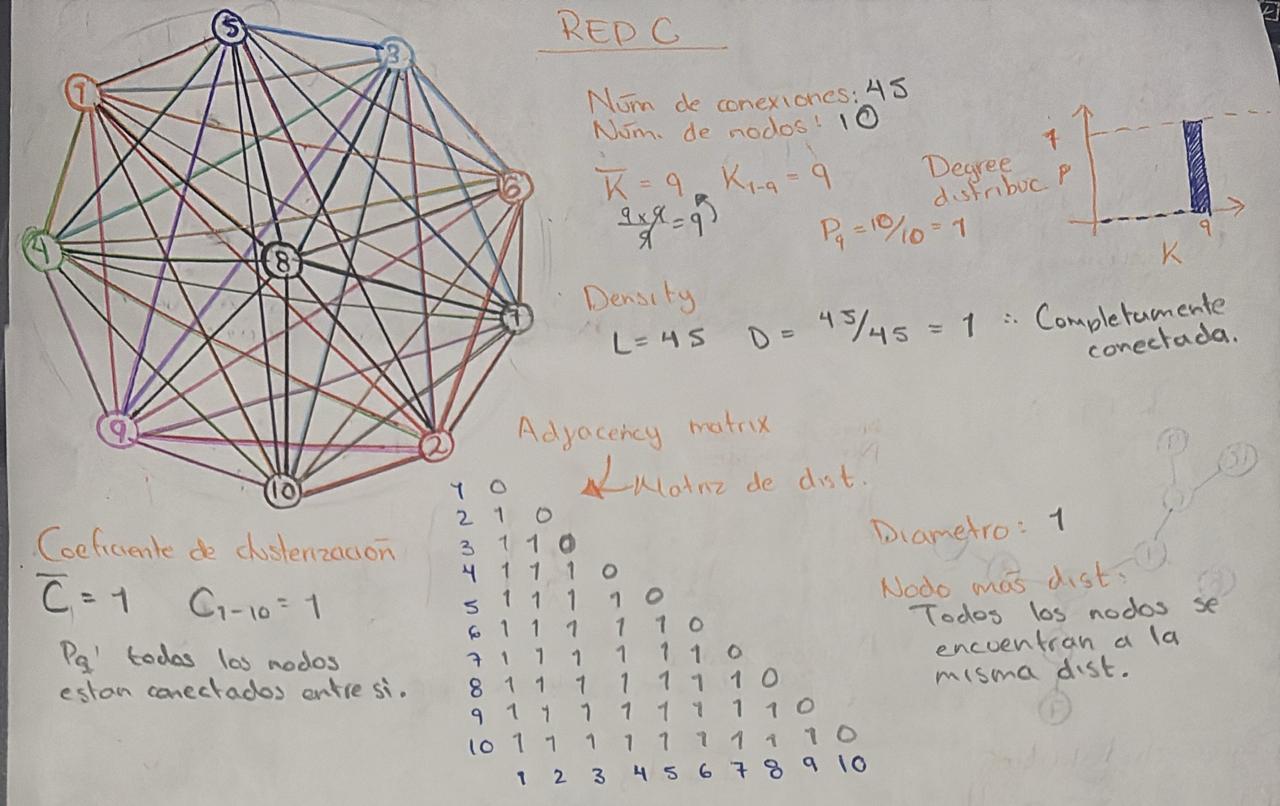 RED C
Núm de conexiones: 45
Núm. de nodos: 10
K̅ = 9 K1-9 = 9
9x9/9 = 9
Degree
distribuc.
P9 = 10/10 = 1
1
P
9
K
Density
L = 45 D = 45/45 = 1 ∴ Completamente
conectada.
5
3
1
6
4
8
7
9
2
10
Adyacency matrix
Matriz de dist.
1 0
2 1 0
3 1 1 0
4 1 1 1 0
5 1 1 1 1 0
6 1 1 1 1 1 0
7 1 1 1 1 1 1 0
8 1 1 1 1 1 1 1 0
9 1 1 1 1 1 1 1 1 0
10 1 1 1 1 1 1 1 1 1 0
1 2 3 4 5 6 7 8 9 10
Coeficiente de clusterización
C̅ = 1 C1-10 = 1
Pq' todos los nodos
estan conectados entre si.
Diametro: 1
Nodo más dist:
Todos los nodos se
encuentran a la
misma dist.